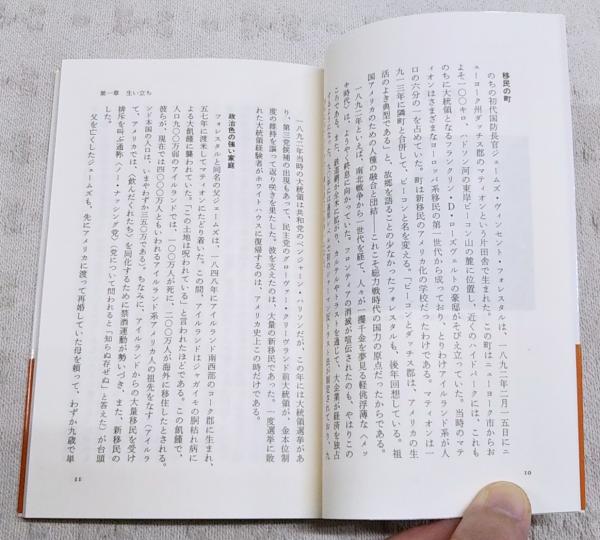 移民の町
のちの初代国防長官ジェームズ・ヴィンセント・フォレスタルは、一八九二年二月一五日にニ
ューヨーク州ダッチス郡のマティオンという片田舎で生まれた。この町はニューヨーク市からお
よそ一〇〇キロ、ハドソン河の東岸ビーコン山の麓に位置し、近くのハイドパークには、これも
のちに大統領となるフランクリン・D・ローズヴェルトの豪邸がそびえ立っていた。当時のマテ
ィオンはさまざまなヨーロッパ系移民の第一世代から成っており、とりわけアイルランド系が人
口の六分の一を占めていた。町は新移民のアメリカ化の学校だったわけである。マティオンは一
九一三年に隣町と合併して、ビーコンと名を変える。「ビーコンとダッチス郡は、アメリカの生
活のよき典型である」と、故郷を語ることの少なかったフォレスタルも、後年回想している。祖
国アメリカのための人種の融合と団結――これこそ総力戦時代の国力の原点だったからである。
一八九二年といえば、南北戦争から一世代を経て、人々が一攫千金を夢見る軽佻浮薄な〈メッ
キ時代〉は、ようやく終息に向かっていた。フロンティアの消滅が喧伝されたのも、やはりこの
ころである。また、鉄道網が全米に拡がり、カルテルやトラストを通じて、大企業が経済を独占
10
り、第三党候補の出現もあって、民主党のグローヴァー・クリーヴランド前大統領が、金本位制
度の維持を謳って返り咲きを果たした。彼を支えたのは、大量の新移民であった。一度選挙に敗
れた大統領経験者がホワイトハウスに復帰するのは、アメリカ史上この時だけである。
一八九二年当時の大統領は共和党のベンジャミン・ハリソンだが、この年には大統領選挙があ
政治色の強い家庭
フォレスタルと同名の父ジェームズは、一八四八年にアイルランド南西部のコーク郡に生まれ、
五七年に渡米してマティオンにたどり着いた。この間、アイルランドはジャガイモの胴枯れ病に
よる大飢饉に襲われていた。「この土地は呪われている」と言われたほどである。この飢饉で、
人口九〇〇万弱のアイルランドでは、一〇〇万人が死に、二〇〇万人が海外に移住したとされる。
彼らが、現在では四〇〇〇万人ともいわれるアイルランド系アメリカ人の祖先をなす（アイルラ
ンド本国の人口は、いまやわずか三五〇万である）。ちなみに、アイルランドからの大量移民を受け
て、アメリカでは、〈飲んだくれたち〉を同化するために禁酒運動が勢いづき、また、新移民の
排斥を叫ぶ通称〈ノー・ナッシング党〉（党について問われると「知らぬ存ぜぬ」と答えた）が台頭
父を亡くしたジェームズも、先にアメリカに渡って再婚していた母を頼って、わずか九歳で単
第一章　生い立ち
11